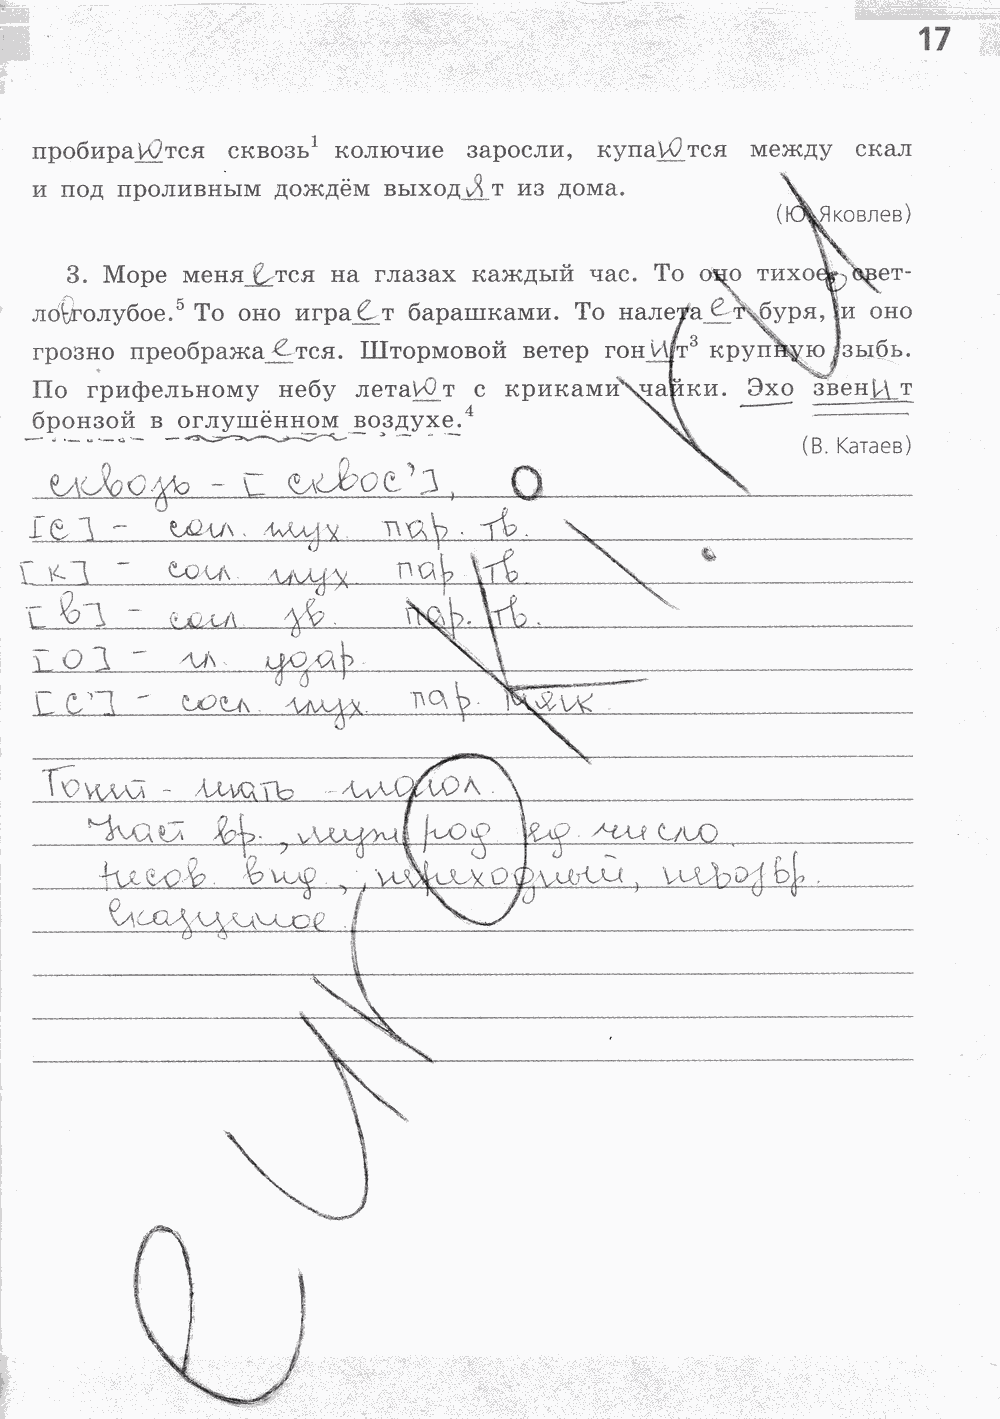 17
пробираются сквозь¹ колючие заросли, купаются между скал
и под проливным дождём выходят из дома.
(Ю. Яковлев)
3. Море меняется на глазах каждый час. То оно тихое, свет-
ло-голубое.⁵ То оно играет барашками. То налетает буря, и оно
грозно преображается. Штормовой ветер гонит³ крупную зыбь.
По грифельному небу летают с криками чайки. Эхо звенит
бронзой в оглушённом воздухе.⁴
(В. Катаев)
сквозь – [сквос'],
[с] – согл. глух. пар. тв.
[к] – согл. глух. пар. тв.
[в] – согл. зв. пар. тв.
[о] – гл. удар.
[с'] – согл. глух. пар. мягк.
Гонит – гнать – глагол.
Наст вр., муж род ед. число.
Несов. вид, переходный, невозвр.
Сказуемое.